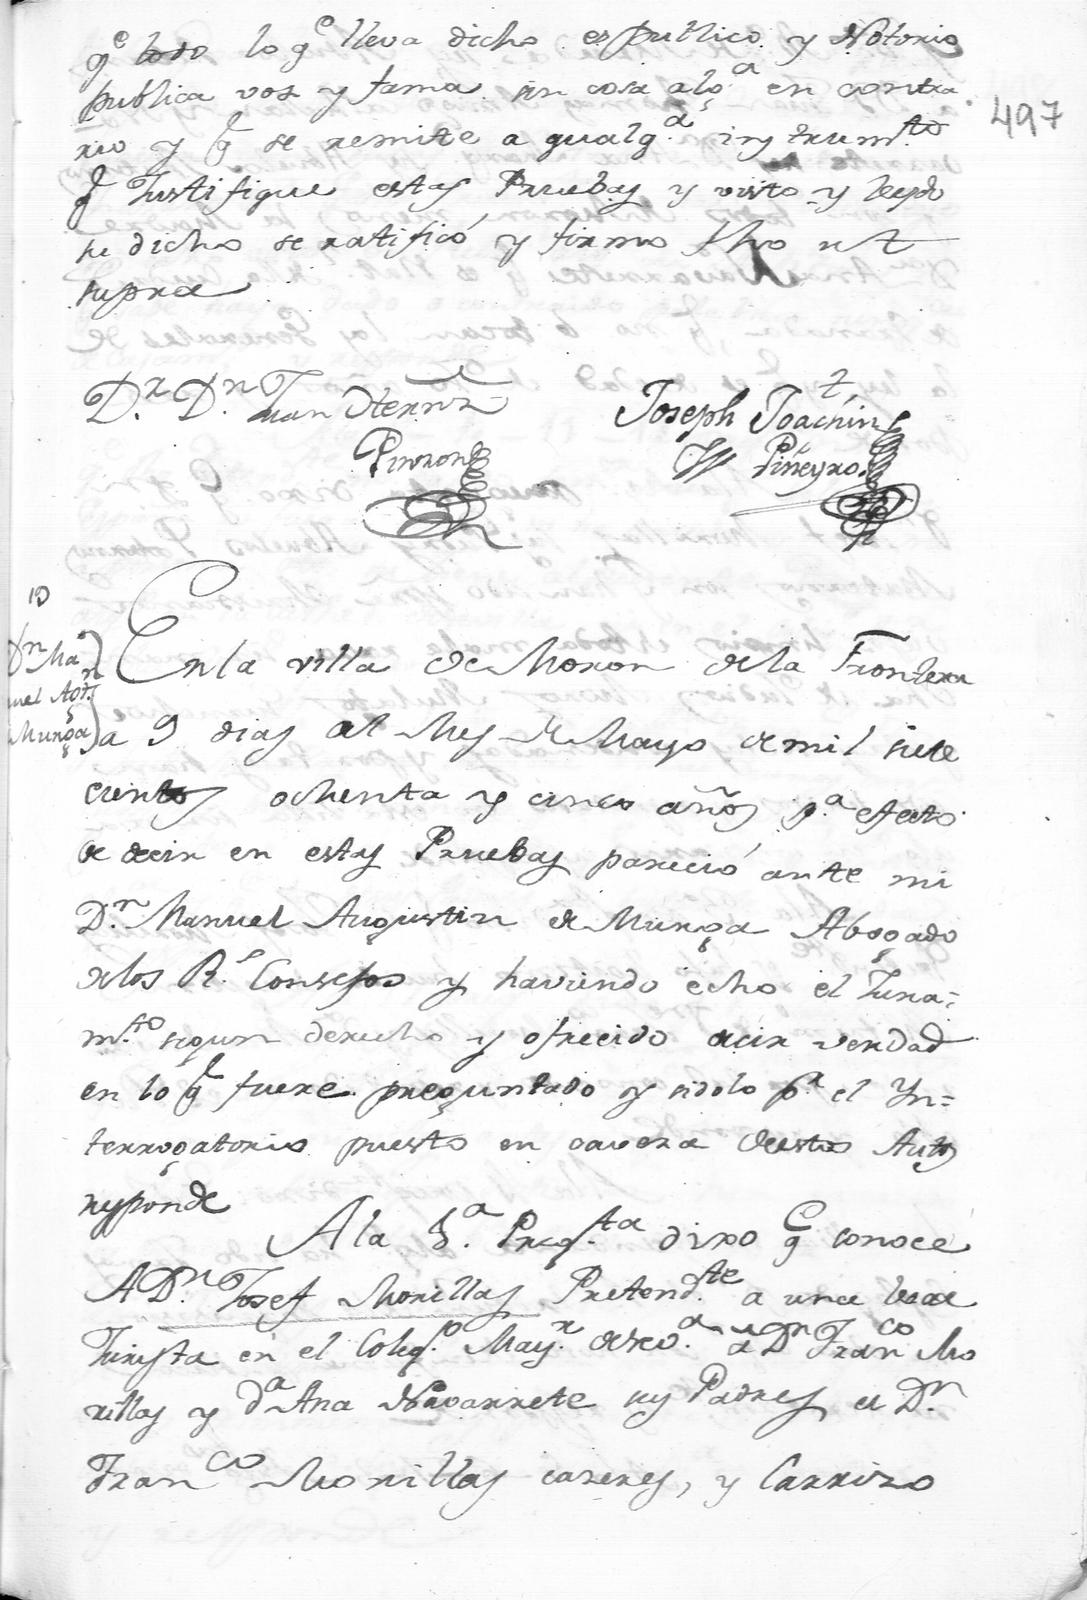 qe todo lo qe lleva dicho es publico y Notorio
publica voz y fama sin cosa alga en contra
rio y q se remite a qualqa instrumto
497
q Justifique estas Pruebas y visto y leydo
su dicho se ratificó y firmo fho ut
supra
Dr. Dn. Juan
Joseph Joachin
Pinzon
Piñeyro
19
Dn Ma
nuel Agn
Munga
En la villa de Moron de la Frontera
a 9 dias del Mes de Mayo de mil siete
cientos ochenta y cinco años pa. efecto
de decir en estas Pruebas pareció ante mi
Dn. Manuel Augustin de Munga Abogado
delos Rs. Consejos y haviendo echo el Jura=
mto. segun derecho y ofrecido decir verdad
en lo q fuere preguntado y sidolo pr el Yn=
terrogatorio puesto en cavera destos Autos
responde
Ala 1a. Pregta dixo qe conoce
A Dn. Josef Morillas Pretendte a una beca
Jurista en el Colego. Mayr. a Dn Franco Mo
rillas y Da Ana Navarrete sus Padres el Dn.
Franco Morillas caseres, y Carrizo